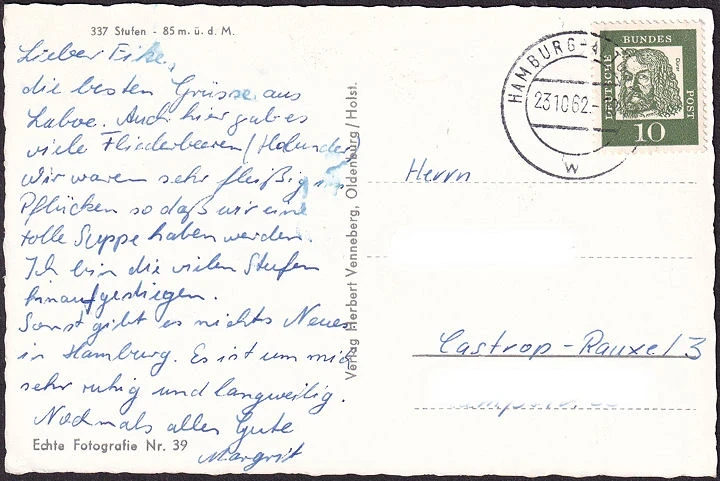 337 Stufen - 85 m. ü. d. M.
Lieber Fike,
die besten Grüsse aus
Laboe. Auch hier gab es
viele Fliederbeeren/Holunder
Wir waren sehr fleißig im
Pflücken so daß wir eine
tolle Suppe haben werden.
Ich bin die vielen Stufen
hinaufgestiegen.
Sonst gibt es nichts Neues
in Hamburg. Es ist um mich
sehr ruhig und langweilig.
Nochmals alles Gute
Margrit
Echte Fotografie Nr. 39
Verlag Herbert Venneberg, Oldenburg/Holst.
HAMBURG-
23.10.62.-
w
DEUTSCHE
BUNDES
POST
Dürer
10
Herrn
Castrop-Rauxel 3